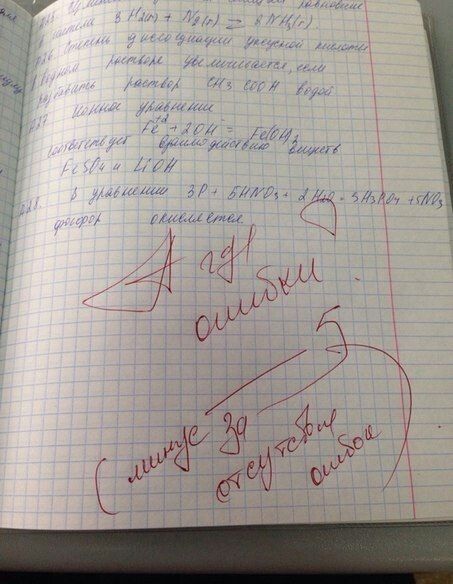 равновесие
в системе 3H2(г) + N2(г) = 2NH3(г).
A26. Степень диссоциации уксусной кислоты
в водном растворе увеличивается, если
разбавить раствор CH3COOH водой
A27. Ионное уравнение
Fe+2 + 2OH- = Fe(OH)2
соответствует взаимодействию веществ
FeSO4 и LiOH
A28. В уравнении 3P + 5HNO3 + 2H2O = 3H3PO4 + 5NO3
фосфор окисляется
А где ?
ошибки
5
(минус за
отсутствие
ошибок)